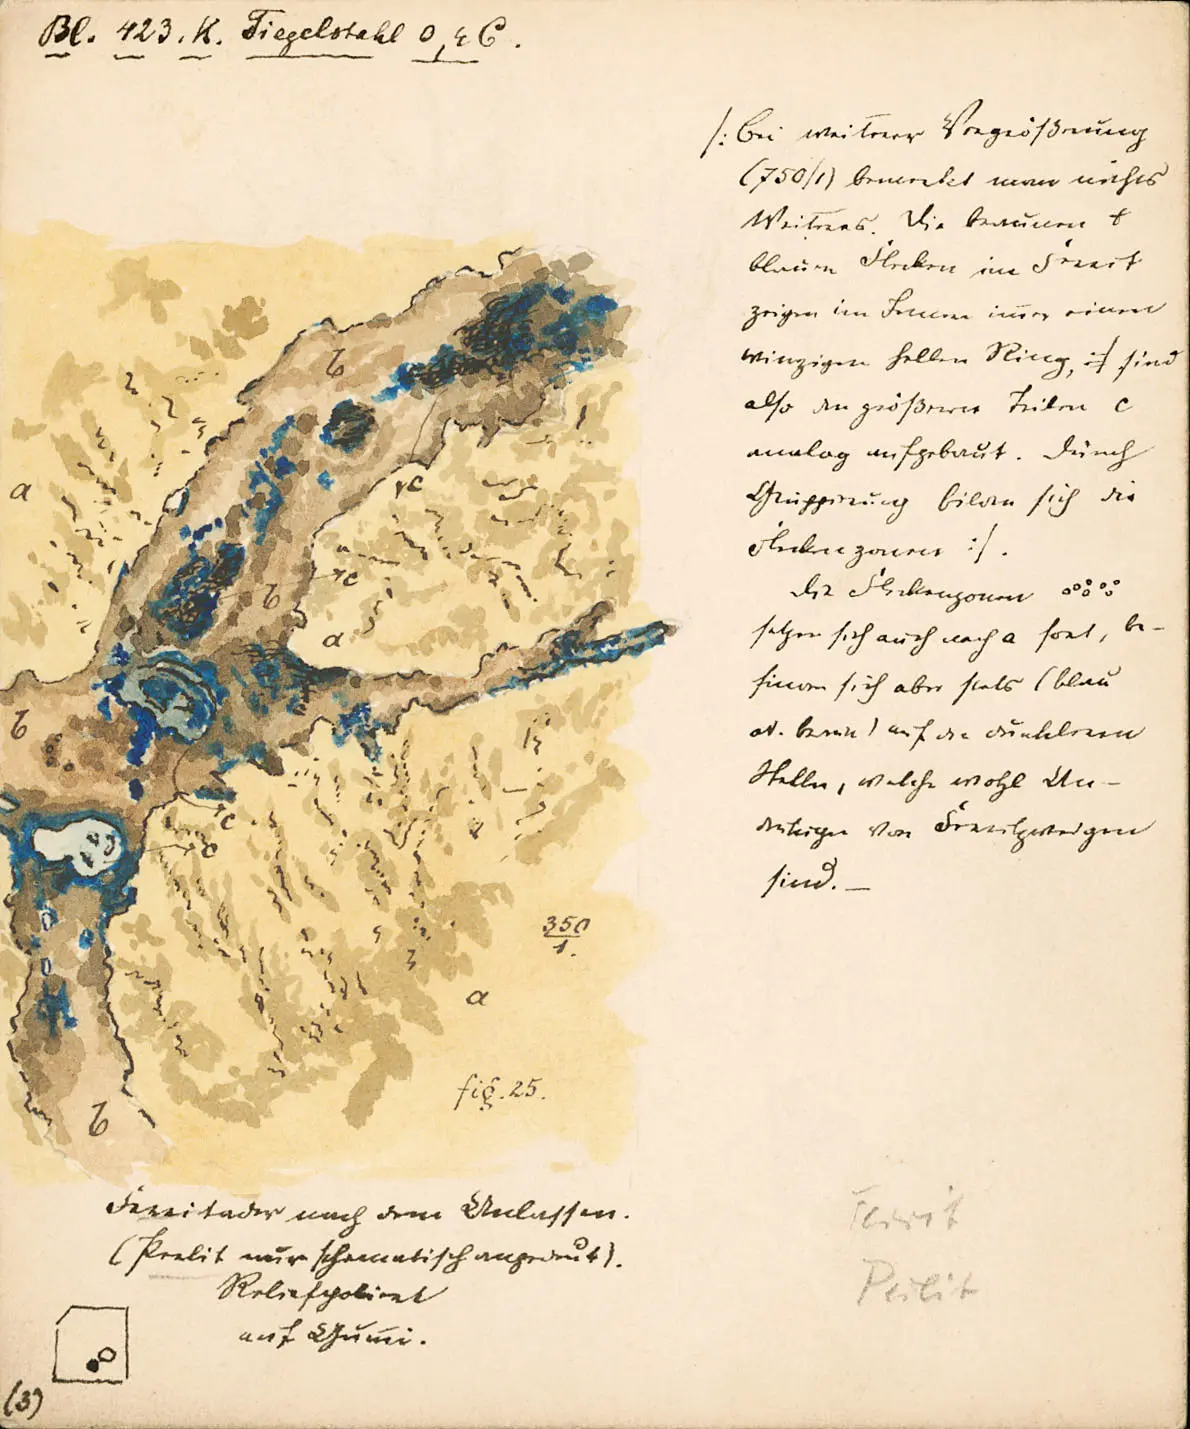 Bl. 423. K. Tiegelstahl 0,4 C.
/: Bei weiterer Vergrößerung
(750/1) bemerkt man nichts
Weiteres. Die braunen +
blauen Flecken im Ferrit
zeigen im Innern immer einen
winzigen hellen Ring, sind
also den größeren Teilen c
analog aufgebaut. Durch
Gruppierung bilden sich die
Fleckenzonen :/.
Die Fleckenzonen
setzen sich auch nach a fort, be-
finden sich aber stets (blau
od. braun) auf den dunkleren
Stellen, welche wohl An-
von Ferritzweigen
sind. —
b
a
c
c
b
a
b
c
c
350
1.
a
fig. 25.
b
Ferritader nach dem Anlassen.
(Perlit nur schematisch angedeut).
Reliefpoliert
auf Gumi.
Ferrit
Perlit
(3)